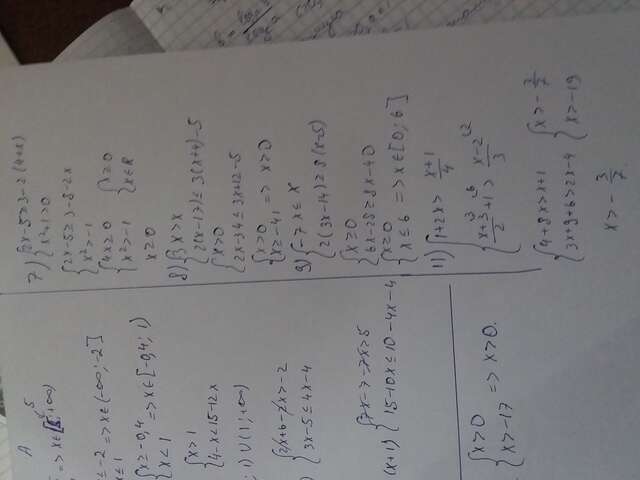 A
5
=> x∈[5;+∞)
≤ -2
x ≤ 1 => x∈(-∞;-2]
{x ≥ -0,4
x < 1 => x∈[-0,4; 1)
{x > 1
4-x < 15-12x
; 1) ∪ (1; +∞)
{2x+6-2x > -2
3x-5 ≤ 4x-4
(x+1) {7x-7-7x > 5
15-10x ≤ 10-4x-4
{x > 0
x > -17 => x > 0.
7) {2x-5 ≥ 3-2(4+x)
x²+1 > 0
{2x-5 ≥ 3-8-2x
x² > -1
{4x ≥ 0 {x ≥ 0
x² > -1 x∈R
x ≥ 0
8) {3x > x
2(x-17) ≤ 3(x+4)-5
{x > 0
2x-34 ≤ 3x+12-5
{x > 0
x ≥ -41 => x > 0
9) {-7x ≤ x
2(3x-14) ≥ 8(x-5)
{x ≥ 0
6x-28 ≥ 8x-40
{x ≥ 0
x ≤ 6 => x∈[0;6]
11) {1+2x > (x+1)/4
(x+3)/2 +1 > (x-2)/3
{4+8x > x+1 {x > -3/7
3x+9+6 > 2x-4 x > -19
x > -3/7